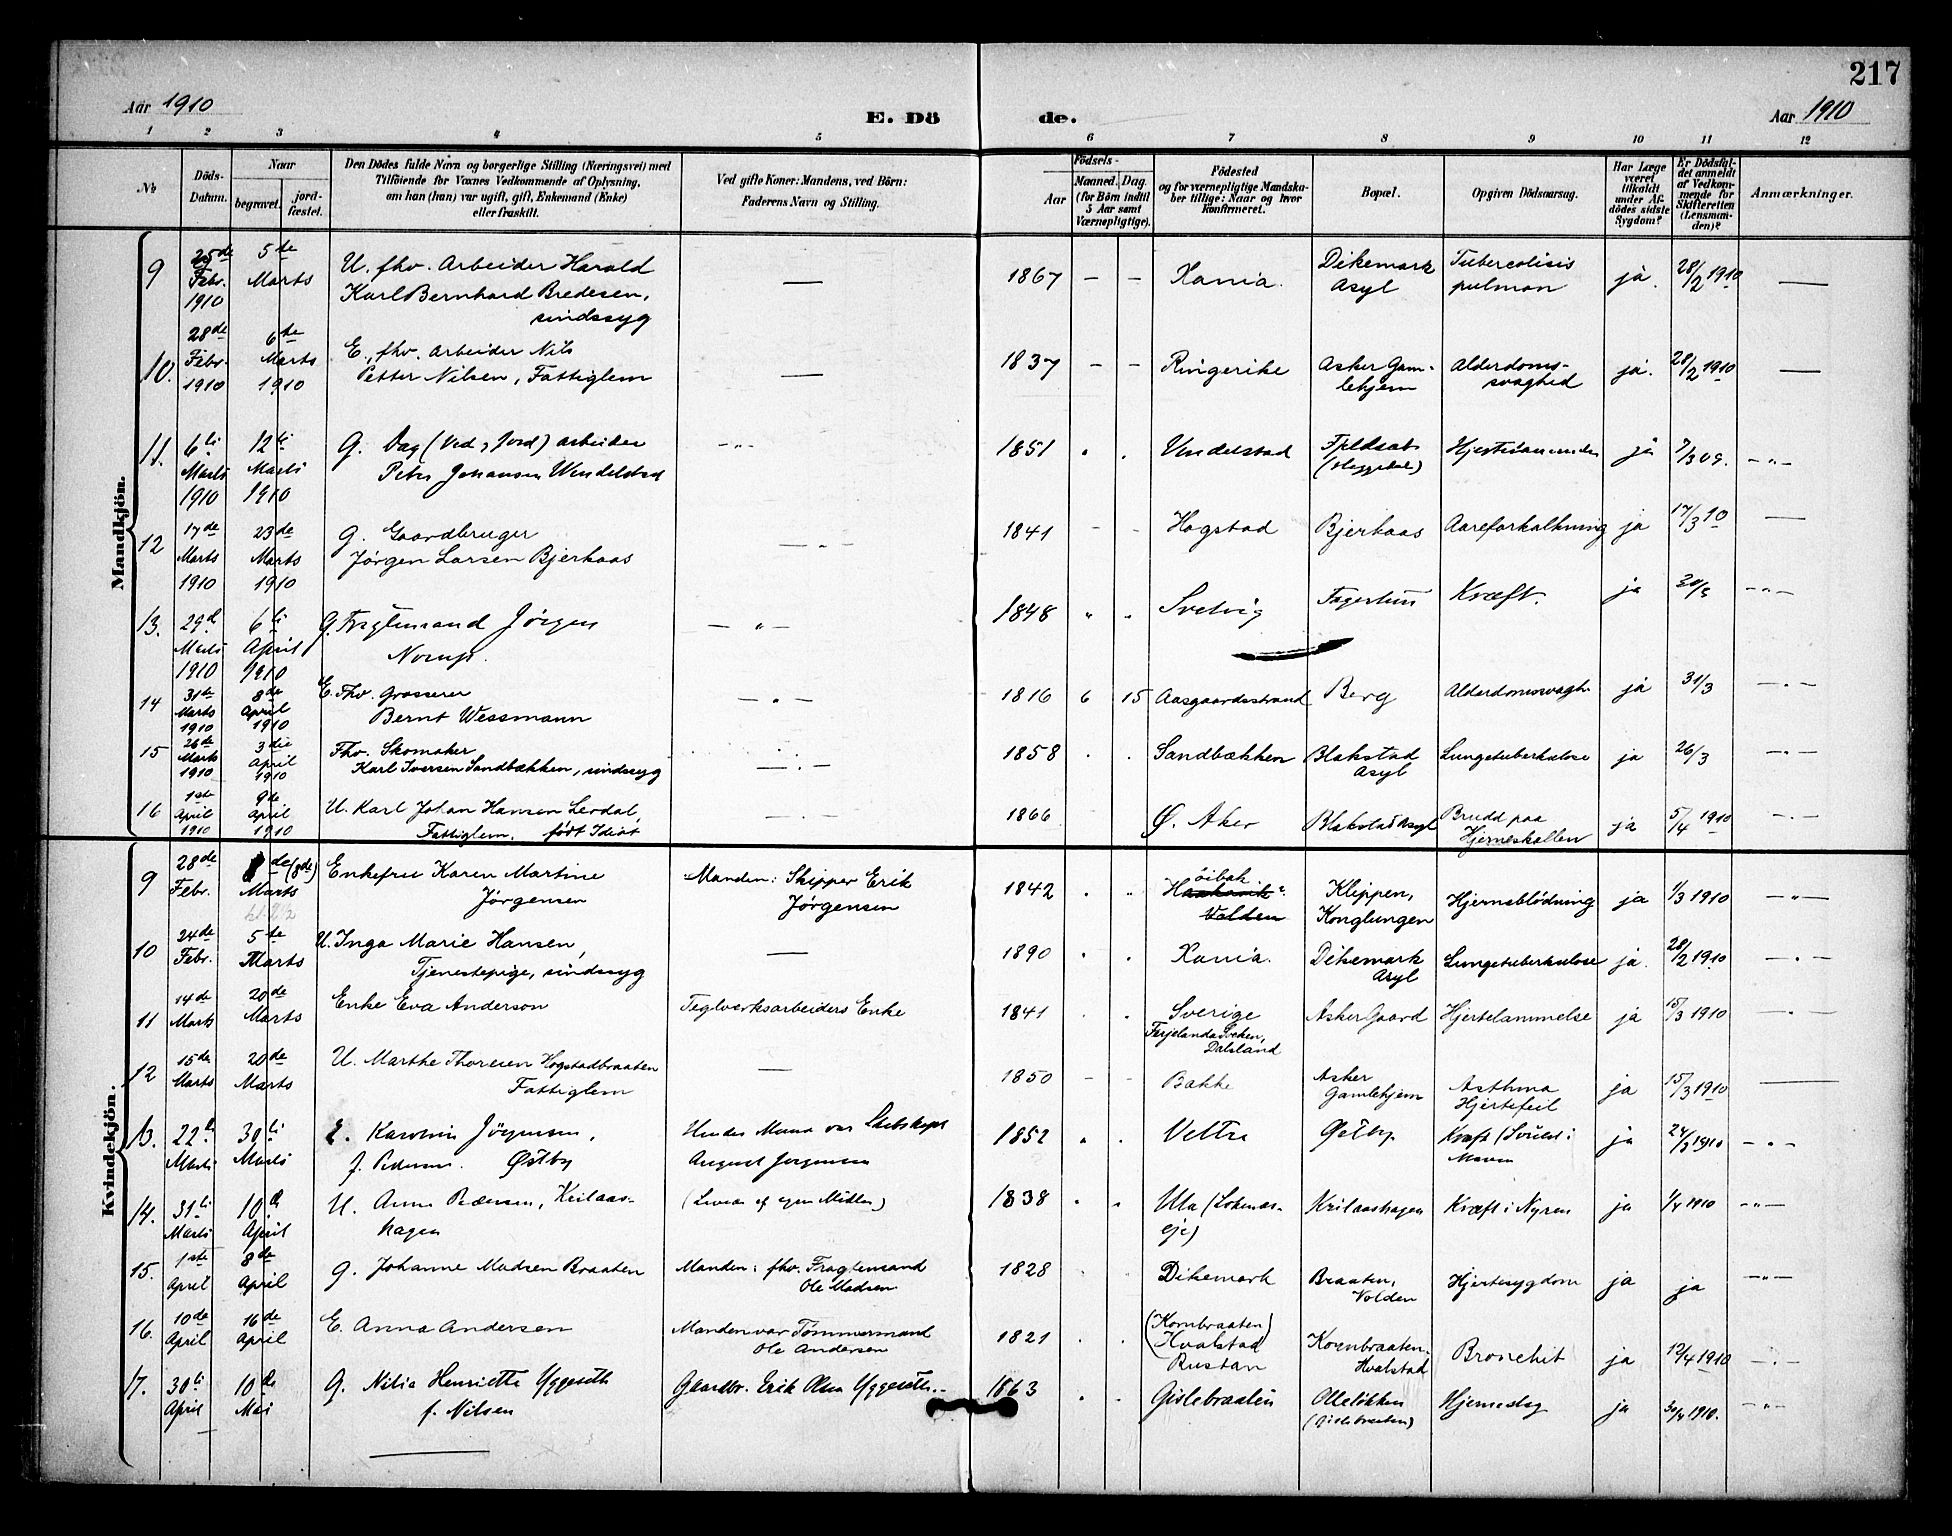 217
Aar 1910 E. Dö de. Aar 1910
1 2 3 4 5 6 7 8 9 10 11 12
No Döds-Datum. Naar begravet. jord-fæstet. Den Dödes fulde Navn og borgerlige Stilling (Næringsvei) med Tilföiende for Voxnes Vedkommende af Oplysning, om han (hun) var ugift, gift, Enkemand (Enke) eller fraskilt. Ved gifte Koner: Mandens, ved Börn: Faderens Navn og Stilling. Födsels- Aar Maaned. Dag. (for Börn indtil 5 Aar samt Værnepligtige). Födested og for værnepligtige Mandskaber tillige: Naar og hvor Konfirmeret. Bopæl. Opgiven Dödsaarsag. Har Læge været tilkaldt under Afdödes sidste Sygdom? Er Dödsfaldet anmeldt af Vedkommende for Skifteretten (Lensmanden)? Anmærkninger.
Mandkjön.
9 25de Febr. 1910 5te Marts U. fhv. Arbeider Harald Karl Bernhard Bredesen, sindssyg — 1867 – – Xania. Dikemark Asyl Tuberculosis pulmon ja. 28/2 1910 —
10. 28de Febr. 1910 6te Marts 1910 E., fhv. Arbeider Nils Petter Nilsen, Fattiglem — 1837 – – Ringerike Asker Gamlehjem Alderdomssvaghed ja. 28/2 1910 —
11. 6ti Marts 1910 12ti Marts 1910 G. Dag (Ved, Jord) arbeider Peter Johansen Wendelstad – „ – 1851 „ „ Vendelstad ja 7/3 09. – „ –
12 17de Marts 1910 23de Marts 1910 G. Gaardbruger Jørgen Larsen Bjerkaas – „ – 1841 – – Hogstad Bjerkaas Aareforkalkning ja 17/3 10 —
13. 29d Marts 1910 6ti April 1910 G. Fragtemand Jörgen Norup. – „ – 1848 „ „ Svelvig Fagertun Kræft. ja – „ –
14 31te Marts 1910 8de April 1910 E. Fhv. Grosserer Bernt Wessmann – „ – 1816 6 15 Aasgaardsstrand Berg Alderdomssvagh. ja 31/3 – „ –
15 26de Marts 1910 3die April 1910 Fhv. Skomaker Karl Iversen Sandbækken, sindssyg – „ – 1858 „ „ Sandbækken Blakstad Asyl Lungetuberkulose ja 26/3 – „ –
16 1ste April 1910 9de April 1910 U. Karl Johan Hansen Lerdal, Fattiglem. født Idiot – „ – 1866 Ø. Aker Blakstad Asyl Brudd paa Hjerneskallen ja 5/4 1910 – „ –
Kvindekjön.
9 28de Febr. de (8de) Marts Enkefru Karen Martine Jørgensen Manden: Skipper Erik Jørgensen 1842 „ „ Klippen, Konglungen Hjerneblödning ja 1/3 1910 – „ –
10 24de Febr. 5te Marts U. Inga Marie Hansen, Tjenestepige, sindssyg — 1890 „ „ Xania. Dikemark Asyl Lungetuberkulose ja. 28/2 1910 – „ –
11 14de Marts 20de Marts Enke Eva Anderson Teglverksarbeiders Enke 1841 „ „ Sverige Dalsland Asker Gaard Hjertelammelse ja 15/3 1910 – „ –
12 15de Marts 20de Marts U. Marthe Thoresen Hogstadbraaten Fattiglem — 1850 – – Bakke Asker Gamlehjem Asthma Hjertefeil ja 15/3 1910 —
13. 22ti Marts 30ti Marts E. Karoline Jörgensen, f. Pedersen. Østby Hendes Mand var August Jørgensen 1852 „ „ Veltre Østby Kræft ja 24/3 1910 – „ –
14. 31ti Marts 10d April U. Anne Pedersen, Keilaashagen (Levde af egne Midler) 1838 „ „ Ula Keilaashagen Kræft i Nyren ja 1/4 1910 – „ –
15. 1ste April 8de April G. Johanne Madsen Braaten Manden: fhv. Fragtemand Ole Madsen 1828 „ „ Dikemark Braaten, Volden Hjertesygdom ja ja – „ –
16. 10de April 16de April E. Anna Andersen Manden var Tömmermand Ole Andersen 1821 „ „ (Kornbraaten) Hvalstad Rustan Kornbraaten, Hvalstad Bronchit ja 12/4 1910 – „ –
17. 30ti April 10de Mai G. Nilia Henriette Yggeseth f. Nilsen Gaardbr. Erik Olsen Yggeseth. 1863 „ „ Gislebraaten Olleløkken (Gislebraaten) Hjerneslag ja 30/4 1910. – „ –